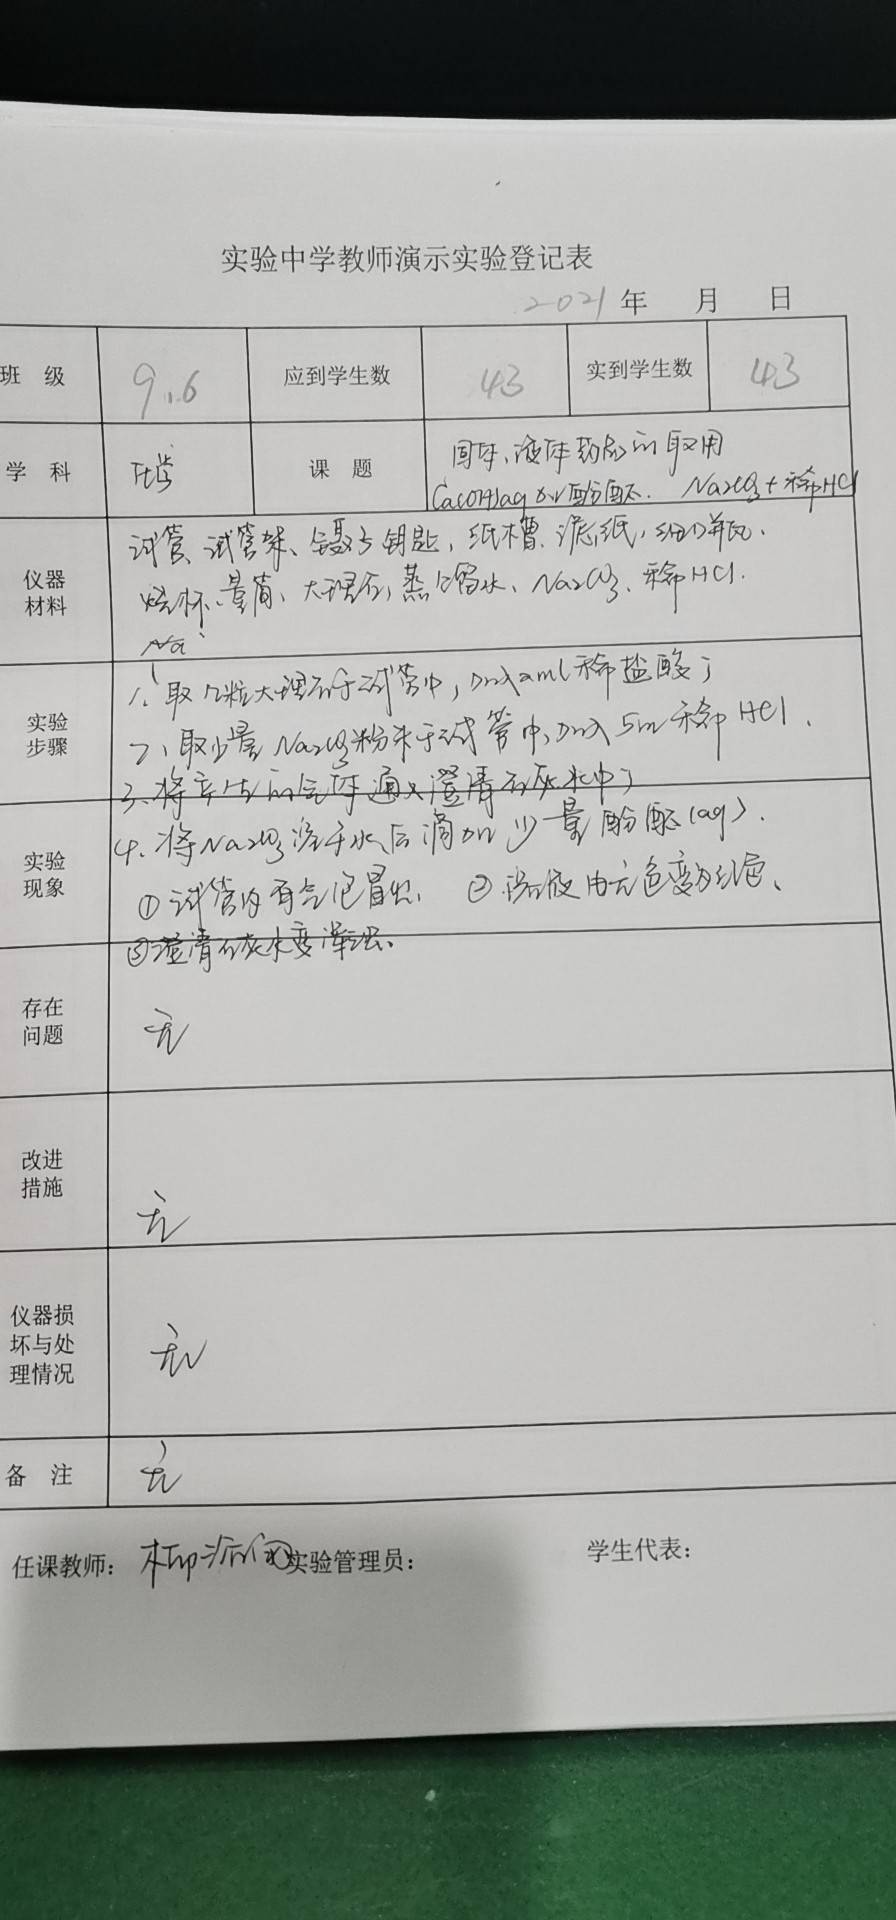 实验中学教师演示实验登记表
2021 年 月 日
班 级 9.6 应到学生数 43 实到学生数 43
学 科 化学 课 题 固体、液体药品的取用
Ca(OH)aq 加酚酞. Na2CO3+稀HCl
仪器材料 试管、试管架、镊子、钥匙,纸槽、滤纸,细口瓶.
烧杯、量筒、大理石,蒸馏水、Na2CO3、稀HCl.
Na
实验步骤 1、取几粒大理石于试管中,加入2ml稀盐酸;
2、取少量Na2CO3粉末于试管中,加入5m稀HCl.
3、将产生的气体通入澄清石灰水中;
4、将Na2CO3溶于水后滴加少量酚酞(aq).
实验现象 ①试管内有气泡冒出. ②溶液由无色变为红色、
③澄清石灰水变浑浊.
存在问题 无
改进措施 无
仪器损坏与处理情况 无
备 注 无
任课教师: 柳 实验管理员: 学生代表: